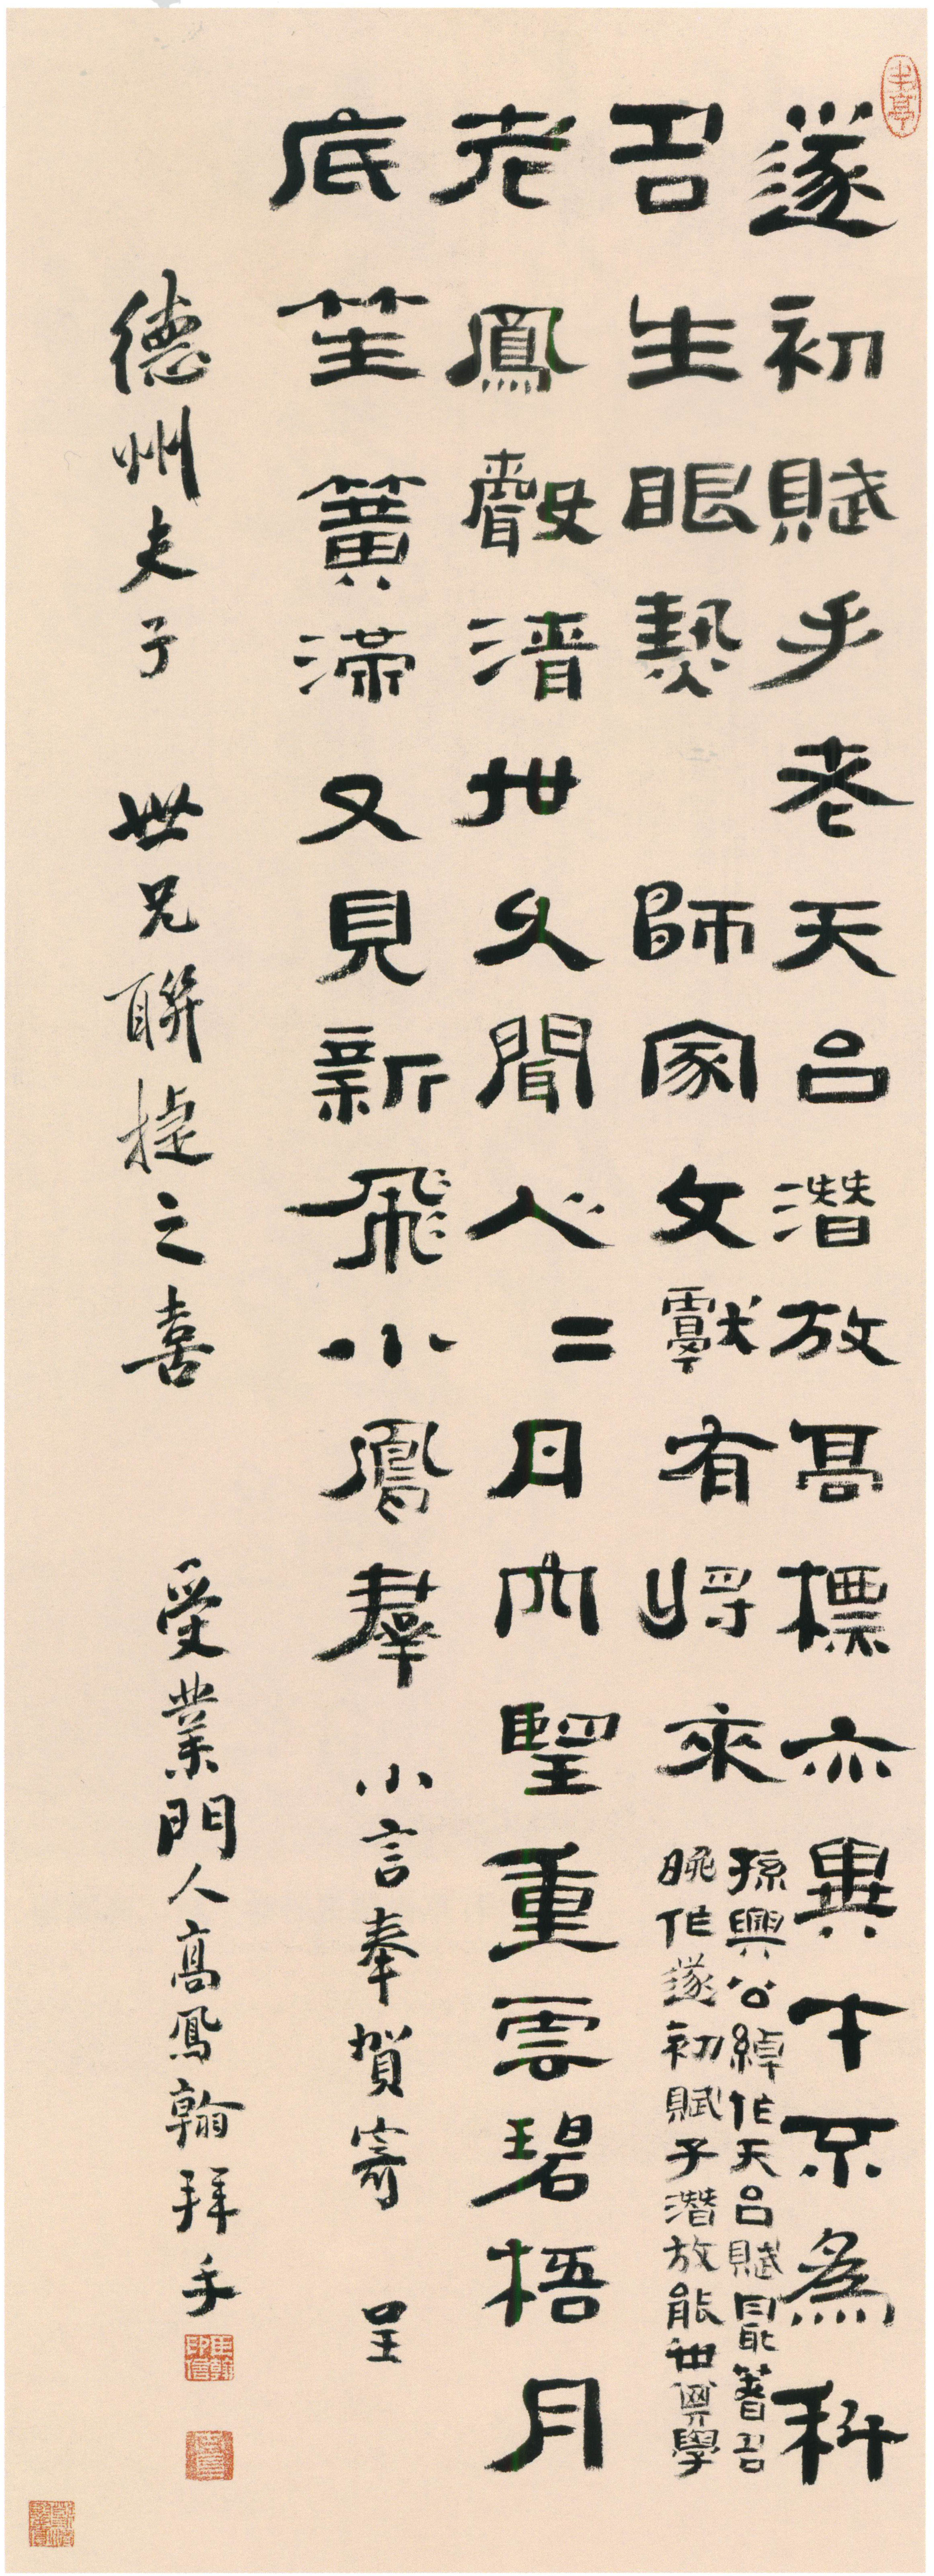 遂初賦手老天台潛放高標亦異才不爲科
名生眼熱　師家文獻有將來
孫興公綽作天台賦最著名
晚作遂初賦子潛放能世其學
老鳳聲清世久聞人二月內聖重雲碧梧月
底笙簧滿又見新飛小鳳羣
小言奉賀寄　呈
德州夫子　世兄聯捷之喜
受業門人高鳳翰拜手